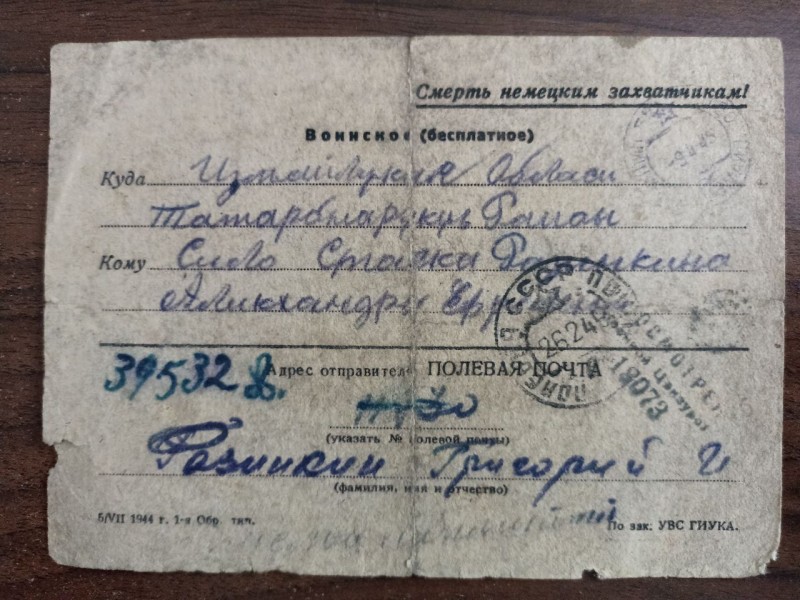 Смерть немецким захватчикам!
Воинское (бесплатное)
Куда Измаилукия Обласи
Татарбнарукий Раион
Кому Сило Спаска Разинкина
Аликхандри
39532 В.
Адрес отправителя: ПОЛЕВАЯ ПОЧТА
(указать № полевой почты)
Разинкин Григорий И
(фамилия, имя и отчество)
5/VII 1944 г. 1-я Обр. тип.
По зак. УВС ГИУКА.
СССР
ПРОСМОТРЕНО
Военной Цензурой
18073